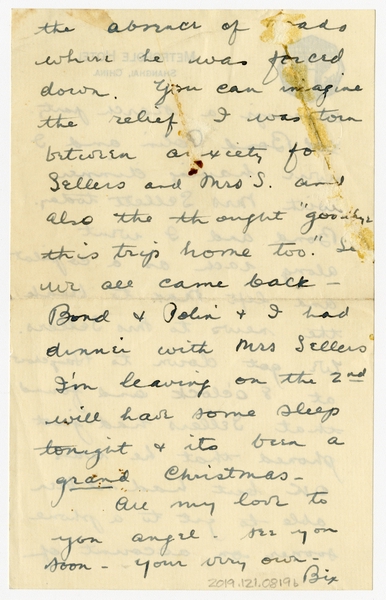 the absence of roads
where he was forced
down. You can imagine
the relief. I was torn
between anxiety for
Sellers and Mrs S. and
also the thought "goodbye
this trip home too." So
we all came back –
Bond & Polin & I had
dinner with Mrs Sellers
I'm leaving on the 2nd
will have some sleep
tonight & its been a
grand Christmas –
All my love to
you angel. See you
soon – your very own –
Bix
2019.121.0819b